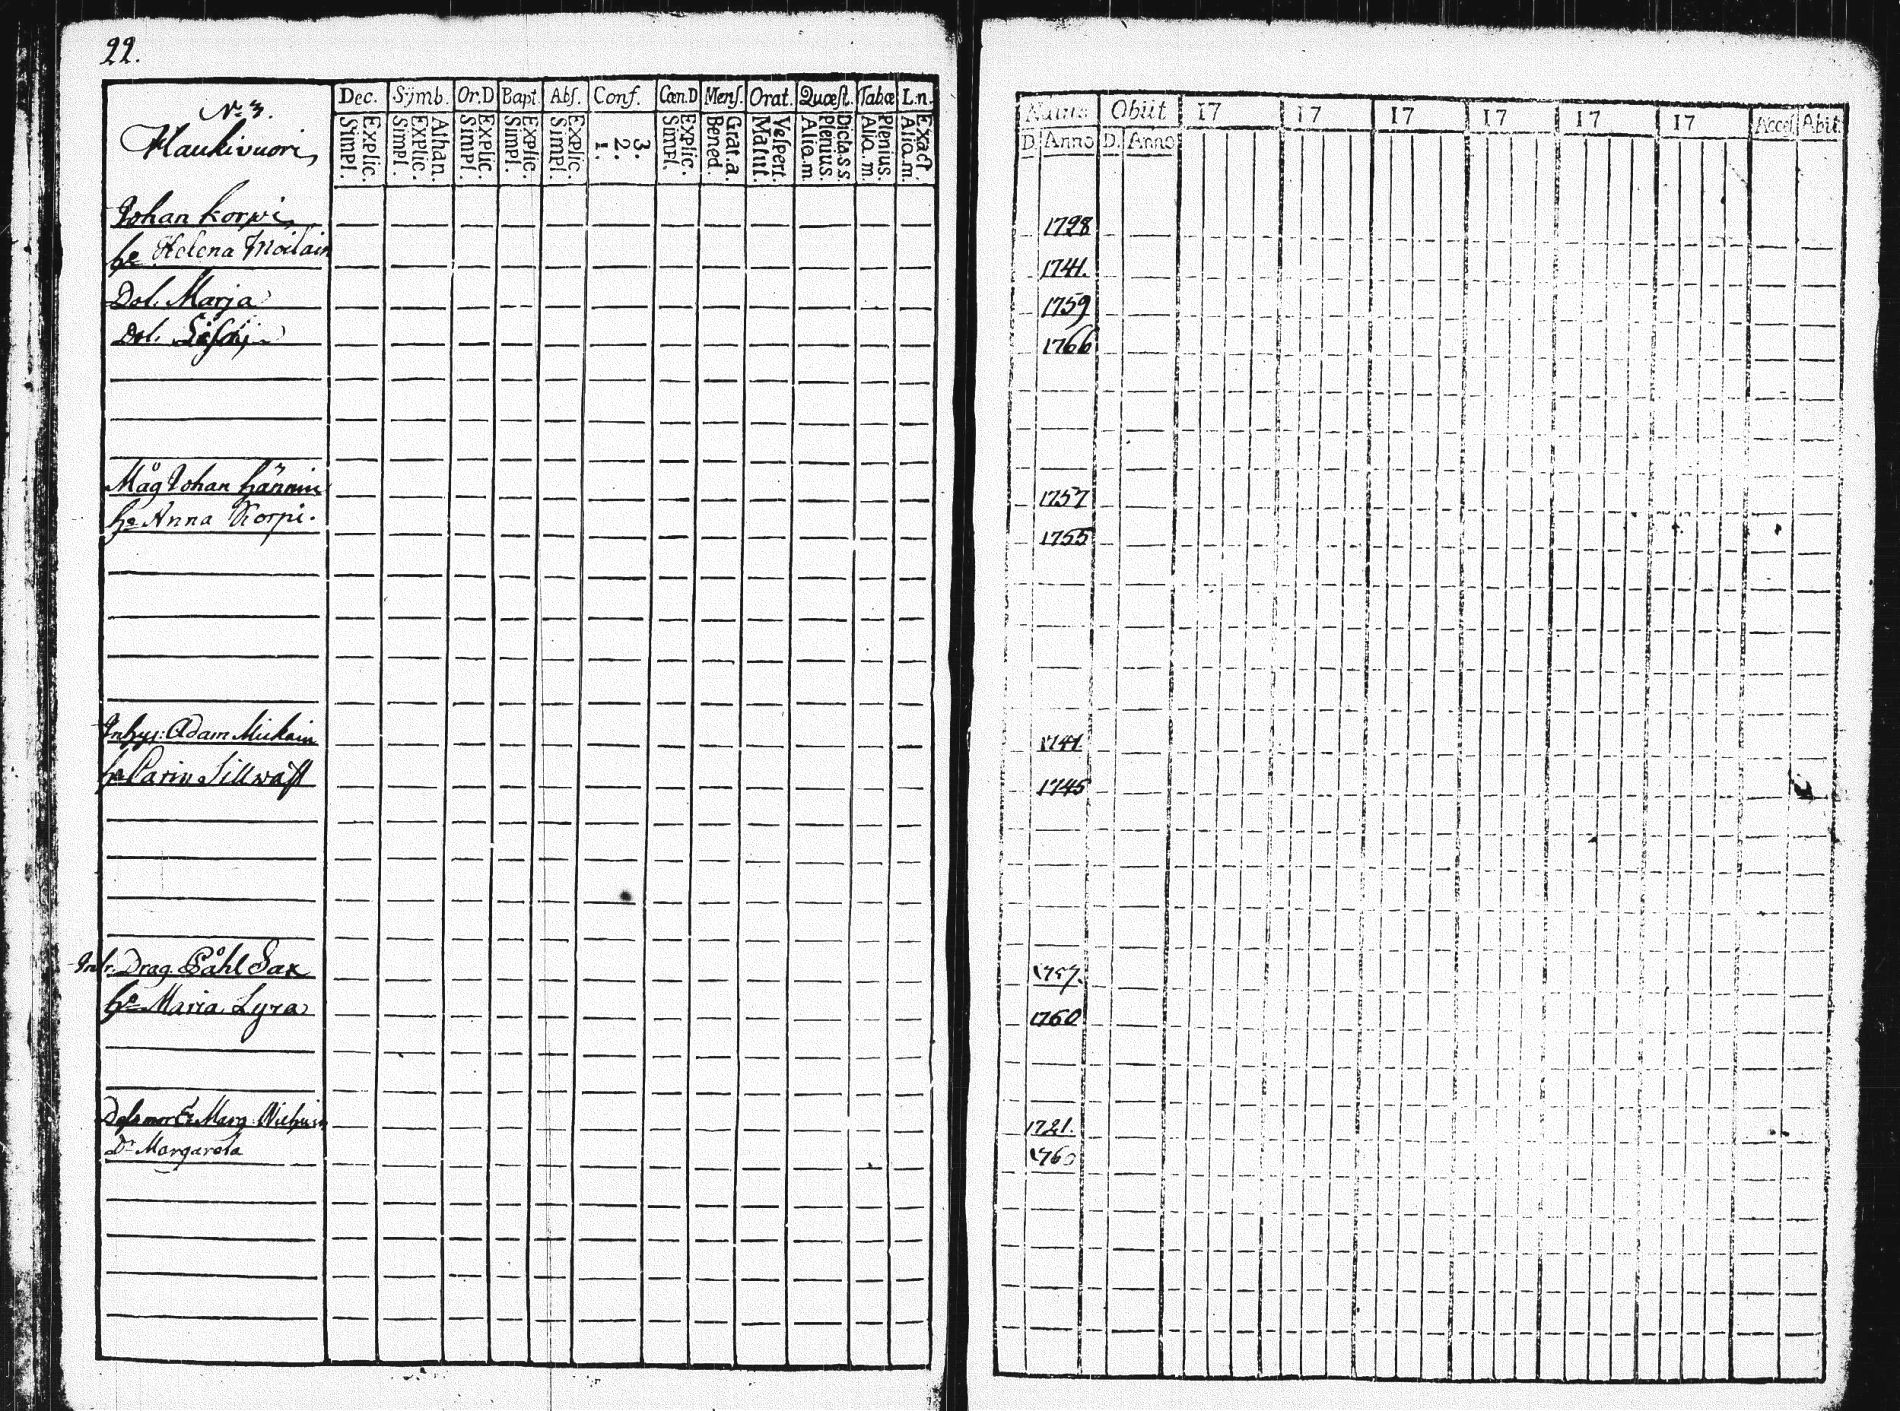 22.
Dec. Symb. Or.D Bapt. Abs. Conf. Cœn.D Mens. Orat. Quæst. Tabæ L.n.
Nr 3.
Haukivuori
Explic. Simpl. Athan. Explic. Simpl. Explic. Simpl. Explic. Simpl. Explic. Simpl. 3. 2. 1. Explic. Simpl. Grat.a Bened. Vespert. Matut. Dicta.s.s. Plenius. Aliq.m. Plenius. Aliq.m. Exact. Aliq.m.
Johan Korpi
he Helena Moilain
Dot. Marja
Dot.
Måg Johan Hännin
he Anna Korpi.
Inhys: Adam Miskain
he Carin Sillwast
Drag. Påhl Sax
he Maria Lyra
Marg.
Dr Margareta
Natus Obiit 17 17 17 17 17 17 Acces. Abit.
D. Anno D. Anno
1728
1741.
1759
1766
1757
1755
1741
1745
1757.
1760
1721.
1760